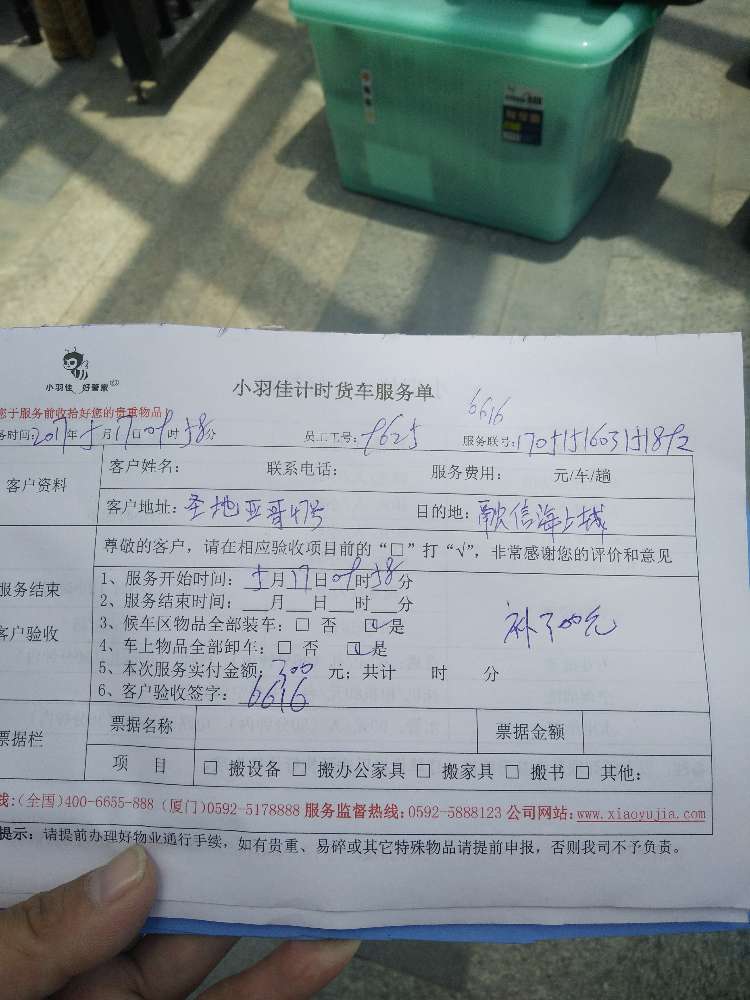 小羽佳 好管家
小羽佳计时货车服务单
6616
您于服务前收拾好您的贵重物品
务时间:2017年5月17日09时58分 员工工号: 服务联号:
客户资料
客户姓名: 联系电话: 服务费用: 元/车/趟
客户地址:圣地亚哥47号 目的地:融信海上城
服务结束
客户验收
尊敬的客户，请在相应验收项目前的“□”打“√”，非常感谢您的评价和意见
1、服务开始时间:5月17日09时58分
2、服务结束时间:___月___日___时___分
3、候车区物品全部装车:□ 否 ☑是
4、车上物品全部卸车:□ 否 ☑是
5、本次服务实付金额:300 元；共计 时 分
6、客户验收签字:6616
票据栏
票据名称 票据金额
项 目 □ 搬设备 □ 搬办公家具 □ 搬家具 □ 搬书 □ 其他:
线:(全国)400-6655-888 (厦门)0592-5178888 服务监督热线:0592-5888123 公司网站:www.xiaoyujia.com
提示: 请提前办理好物业通行手续，如有贵重、易碎或其它特殊物品请提前申报，否则我司不予负责。